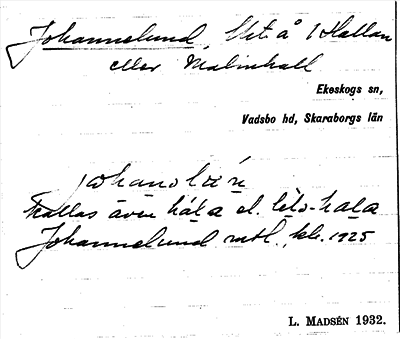 Johanneslund, lht å Hallan
eller Malmhall
Ekeskogs sn,
Vadsbo hd, Skaraborgs län
johanslùn
kallas även hála el. lìla-hala
Johanneslund mtl., kb. 1925
L. MADSÉN 1932.